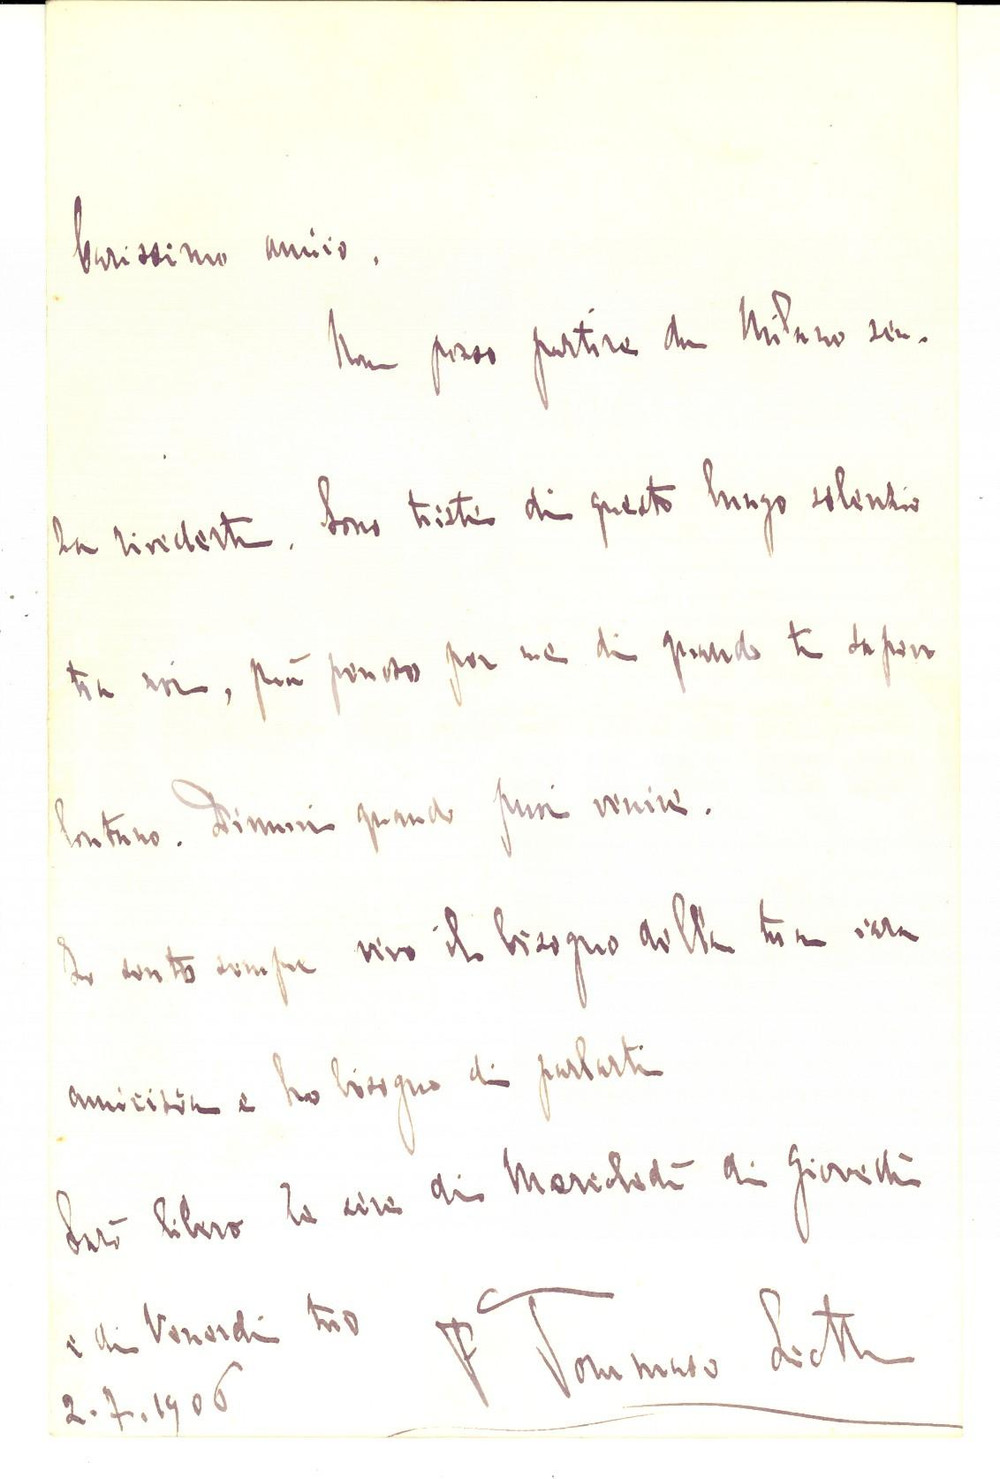 Carissimo amico,
Non posso partire da Milano sen-
za rivederti. Sono triste di questo lungo silenzio
tra noi, più penoso per me di quando ti sapevo
lontano. Dimmi quando puoi venire.
Io sento sempre vivo il bisogno della tua cara
amicizia e ho bisogno di parlarti
Sarò libero le sere di Mercoledì di Giovedì
e di Venerdì tuo F Tommaso
2.7.1906